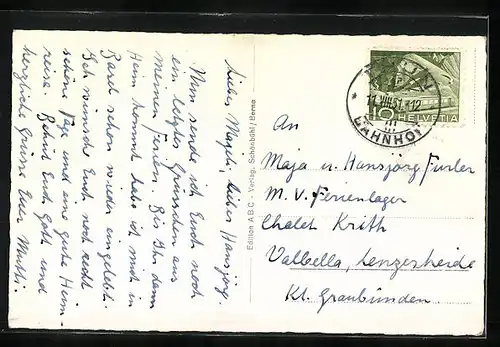 Liebes Maygeli, lieber Hansjörg.
Nun sende ich Euch noch
ein letztes Grüsschen aus
meinen Ferien. Bis Ihr dann
Heim kommt habe ich mich in
Basel schon wieder eingelebt.
Ich wünsche Euch noch recht
schöne Tage und eine gute Heim-
reise. Behüt Euch Gott und
herzliche Grüsse Euer Mutti.
Edition A B C - Verlag, Schönbühl / Berne
11.VIII.51.-12
BAHNHOF
10 HELVETIA
An
Maja u. Hansjörg Furler
M. V. Ferienlager
Chalet Krith
Valbella, Lenzerheide
Kt. Graubünden